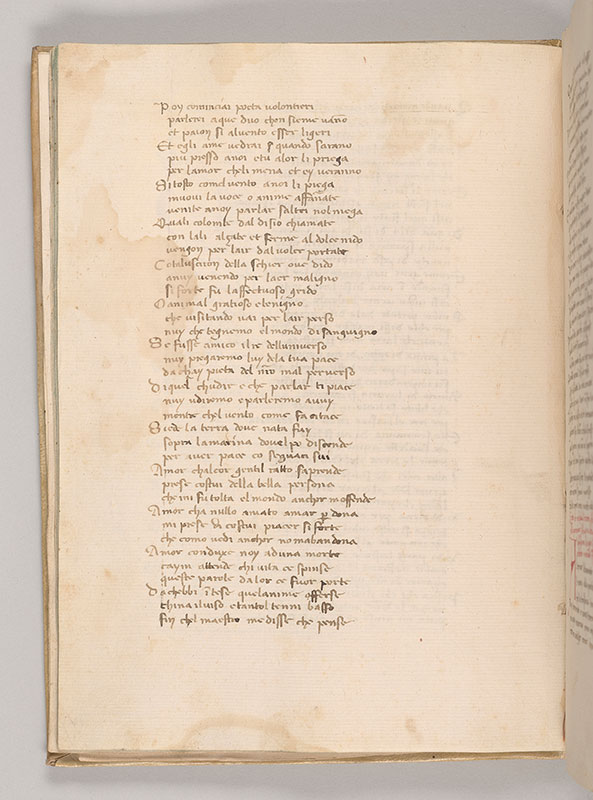 Poy cominciai poeta volontieri
parlerei aque duo chensieme vano
et paion si alvento esser ligeri
Et egli ame vedrai quando sarano
piu presso anoi etu alor li priega
per lamor cheli mena et ey veranno
Si tosto comel vento anoi li piega
muovi la voce o anime affanate
venite anoy parlar saltri nol niega
Quali colombe dal disio chiamate
con lali alzate et ferme al dolce nido
vengon per lair dal voler portate
Cotali uscitron della schier ove dido
anuy venendo per laer maligno
si forte fu laffectuoso grido
O animal gratioso e benigno
che visitando vai per lair perso
nuy che tegnemo el mondo di sanguigno
Se fusse amico il re delluniverso
nuy pregaremo luy dela tua pace
da chay pieta del nro mal perverso
Di quel chudir e che parlar ti piace
nuy udiremo e parleremo avuy
mentre chel vento come fa citace
Siede la terra dove nata fuy
sopra lamarina dovel po discende
per aver pace co seguaci sui
Amor chalcor gentil ratto saprende
prese costui della bella persona
che mi fu tolta el mondo anchor moffende
Amor cha nullo amato amar perdona
mi prese di costui piacer si forte
che como vedi anchor no mabandona
Amor conduxe noy aduna morte
cayin attende chi vita ce spinse
queste parole da lor ce fuor porte
Da chebbi itese quelanime offense
china il viso e tantol tenni basso
fin chel maestro me disse che pense